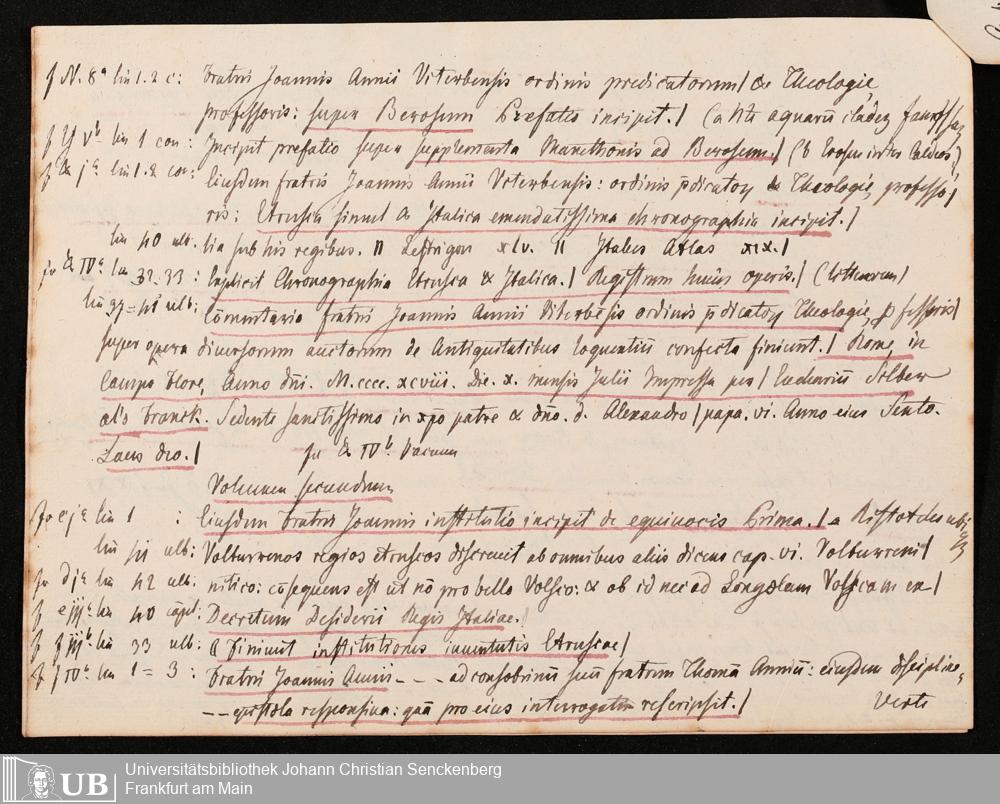 f N. 8a lin 1.2 c: Fratris Joannis Annii Viterbensis ordinis predicatorum/ & Theologie,
professoris: super Berosum Prefatio incipit./ (a Nte aquarū cladem
f V b lin 1 con: Incipit prefatio super supplementa Manethonis ad Berosum./
f j a lin 1.2 con: Eiusdem fratris Joannis Annii Viterbensis: ordinis p̄dicatorꝝ & Theologie, professo/
ris: Etrusca simul & Italica emendatissima chronographia incipit./
lin 40 ult. lia sub his regibus. Lestrigon xlv. Italus Atlas xix./
fo & IV a lin 32-33: Explicit Chronographia Etrusca & Italica./ Registrum huius operis./
lin 37-41 ult: Cōmentaria fratris Joannis Annii Viterbēsis ordinis p̄dicatorꝝ Theologie, ꝓfessoris/
super opera diversorum auctorum de Antiquitatibus loquentium confecta finiunt./ Rome, in
Campo Flore, Anno dn̄i. M.cccc.xcviii. Die. x. mensis Julii Impressa per/ Eucharium Silber
al's Franck. Sedente sanctissimo in xp̄o patre & dn̄o. d. Alexandro/ papa. vi. Anno eius Sexto.
Laus deo./ fo & IV b. Vacuum
Volumen secundum
fo lin 1 : Eiusdem Fratris Joannis institutio incipit de equiuocis Prima./ a Ristoteles
lin ult: Volturrenos regios etruscos discreuit ab omnibus aliis dicens cap. vi. Volturreni/
fo d j a lin 42 ult: nitico: cōsequens est ut nō pro bello Volsco: & ob id nec ad Longolam Volscam ex/
f e iij a lin 40 capt: Decretum Desiderii Regis Italiae./
f f iij b lin 33 ult: Finiunt institutiones iuventutis Etruscae/
f f IV a lin 1-3: Fratris Joannis Annii - - - ad consobrinū suū fratrem Thomā Anniū: eiusdem discipline,
-- epistola responsiua: quā pro eius interrogatis rescripsit./ Verte
UB Universitätsbibliothek Johann Christian Senckenberg
Frankfurt am Main